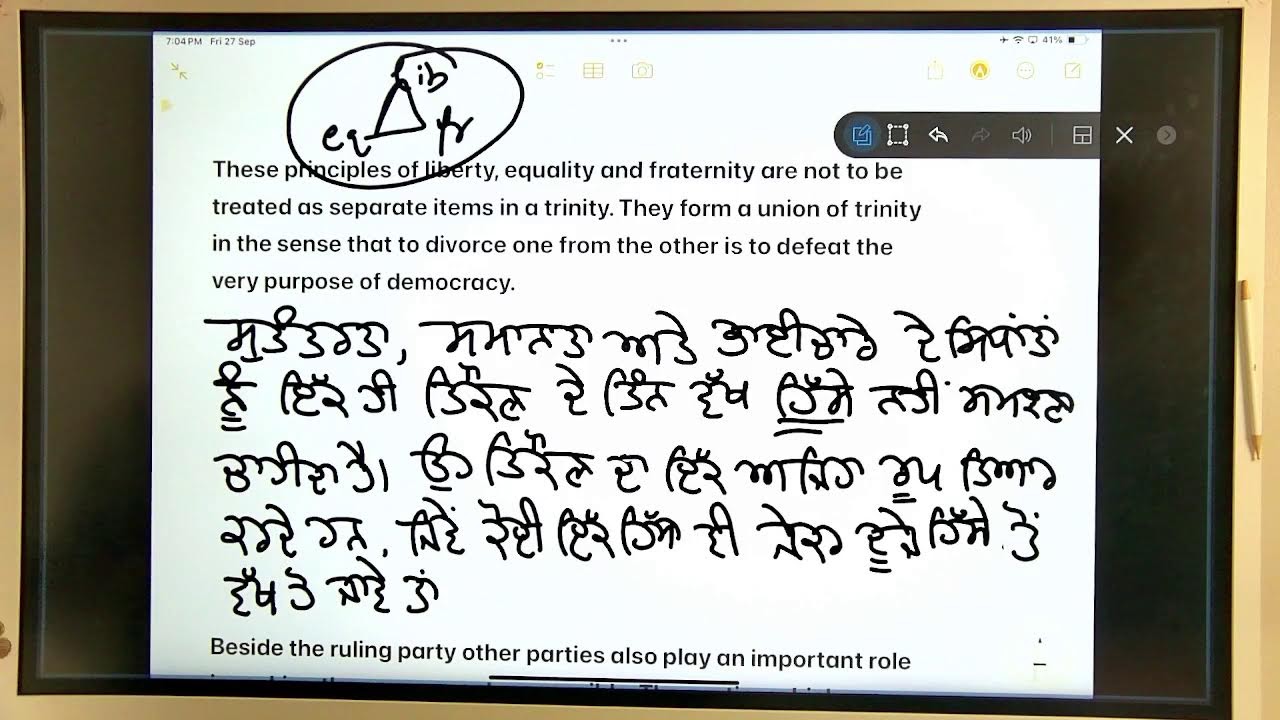 7:04 PM Fri 27 Sep
41%
lib
eq fr
These principles of liberty, equality and fraternity are not to be
treated as separate items in a trinity. They form a union of trinity
in the sense that to divorce one from the other is to defeat the
very purpose of democracy.
ਸੁਤੰਤਰਤਾ, ਸਮਾਨਤਾ ਅਤੇ ਭਾਈਚਾਰੇ ਦੇ ਸਿਧਾਂਤਾਂ
ਨੂੰ ਇੱਕ ਹੀ ਤਿੱਕੋਣ ਦੇ ਤਿੰਨ ਵੱਖ ਹਿੱਸੇ ਨਹੀਂ ਸਮਝਣਾ
ਚਾਹੀਦਾ ਹੈ। ਉਹ ਤਿਕੋਣ ਦਾ ਇੱਕ ਅਜਿਹਾ ਰੂਪ ਤਿਆਰ
ਕਰਦੇ ਹਨ, ਜਿਵੇਂ ਕੋਈ ਇੱਕ ਹਿੱਸਾ ਵੀ ਜੇਕਰ ਦੂਜੇ ਹਿੱਸੇ ਤੋਂ
ਵੱਖ ਹੋ ਜਾਵੇ ਤਾਂ
Beside the ruling party other parties also play an important role